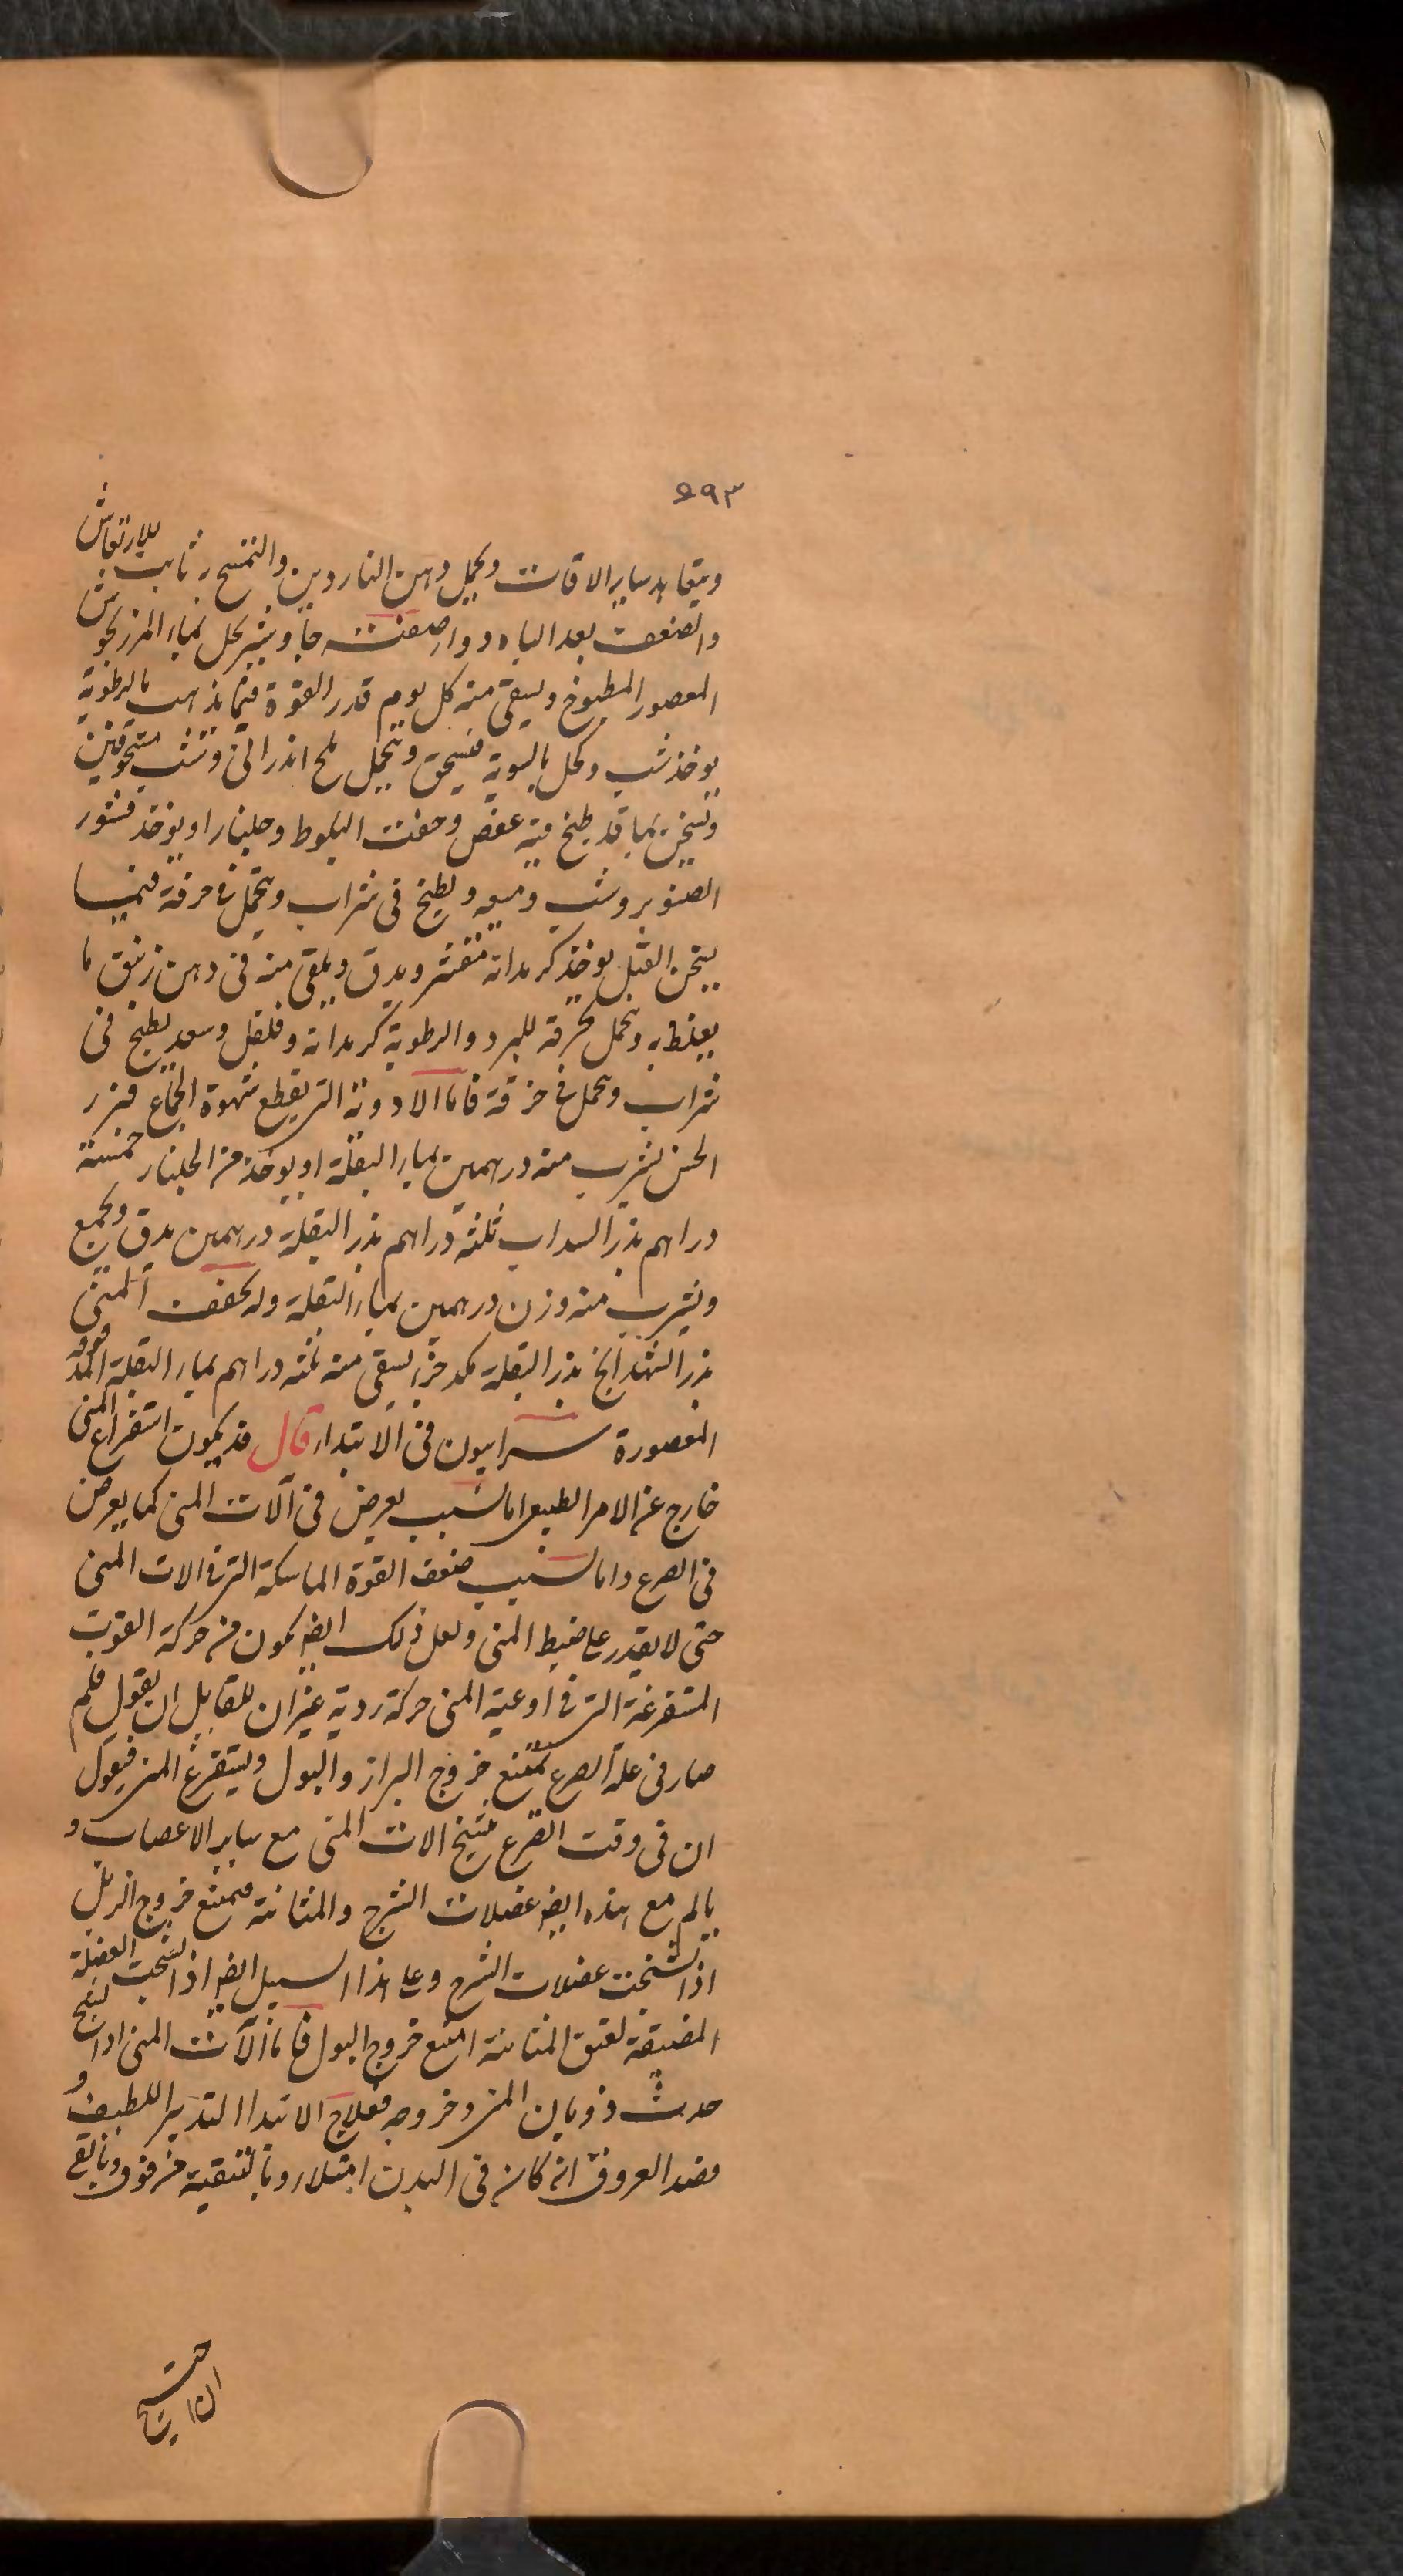 ٤٩٣
ويتعاهد ساير الاوقات ويحمل دهن الناردين والتمسح به ثابت للارتعاش
والضعف بعد الباه دواء صفته جاوشير يحل بماء المرزنجوش
المعصور المطبوخ ويسقى منه كل يوم قدر القوة فيما يذهب بالرطوبة
يوخذ شب وكحل بالسوية فيسحق ويتحمل ملح اندراني وشب مسحوقين
وتسخن بما قد طبخ فيه عفص وجفت البلوط وجلنار او يوخذ قشور
الصنوبر وشب وميعه ويطبخ في شراب ويتحمل في خرقة فيما
يسخن القبل يوخذ كرمدانه مقشر ويدق ويلقى منه في دهن زنبق ما
يغلظ به وتحمل بخرقة للبرد والرطوبة كرمدانه وفلفل وسعد يطبخ في
شراب ويحمل في خرقة فاما الادوية التي يقطع شهوة الجماع فبزر
الخس يشرب منه درهمين بماء البقلة او يوخذ من الجلنار خمسة
دراهم بذر السداب ثلثة دراهم بذر البقلة درهمين يدق ويجمع
ويشرب منه وزن درهمين بماء البقلة وله يجفف المني
بذر الشهدانج بذر البقلة يسقى منه ثلثه دراهم بماء البقلة المدقوقه
المعصورة سرابيون في الابتداء قال قد يكون استفراغ المني
خارج عن الامر الطبيعي اما لسبب يعرض في آلات المني كما يعرض
في الصرع واما لسبب ضعف القوة الماسكة التي في الات المني
حتى لا يقدر على ضبط المني ولعل ذلك ايضا يكون من حركة القوت
المستفرغة التي في اوعية المني حركة ردية غير ان للقايل ان يقول فلم
صار في علة الصرع يمتنع خروج البراز والبول ويستفرغ المني فيقول
ان في وقت الصرع يتشنج الات المني مع ساير الاعصاب و
يالم مع هذه ايضا عضلات الشرج والمثانة فيمتنع خروج الزبل
اذا تشنجت عضلات الشرج وعلى هذا السبيل ايضا اذا تشنجت العضلة
المضيقة لعنق المثانة امتنع خروج البول فاما آلات المني اذا تشنج
حدث ذوبان المني وخروجه فعلاج الابتدا التدبير اللطيف و
فصد العروق ان كان في البدن امتلاء وبالتنقية من فوق وبالقي